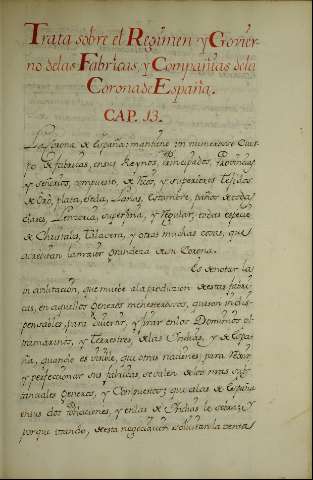 Trata sobre el Regimen y Govier-
no delas Fabricas, y Compañias dela
Corona de España.
CAP. 13.
La Corona de España; mantiene un numeroso Cuer-
po de fabricas, en sus Reynos, Principados, Provincias
y señorios, compuesto de Ricos, y superiores Texidos
de Oro, plata, seda, Lanas, Estambre, paños de todas
clases, Lenceria, superfina, y Regular, todas especie
de Christales, Talavera, y otras muchas cosas, que
acreditan la mayor grandeza de su Corona.
Es de notar la
que mueve ala produzion de estas fabri-
cas, en aquellos generos menesterosos, que son indis-
pensables, para surtir, y girar en los Dominios ul-
tramarinos, y Terrestres, de las Indias, y de Espa-
ña, quando es visible, que otras naciones para
y perfeccionar sus fabricas se valen de los mas sus-
tanciales generos, y Compuestos; que alas de España
en sus dos Poseciones, y en las de Indias le sobran; y
porque quando, de esta negociacion solicitan la